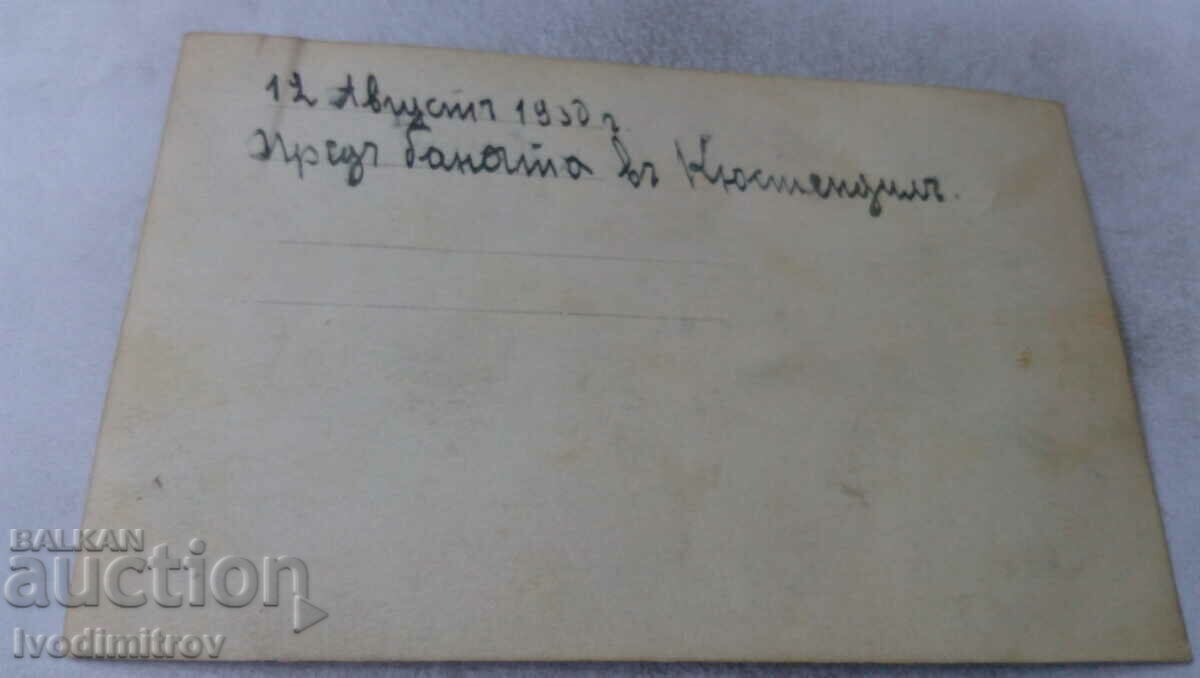 12 Августъ 1930 г.
Предъ банята въ Кюстендилъ.
BALKAN
auction
Ivodimitrov